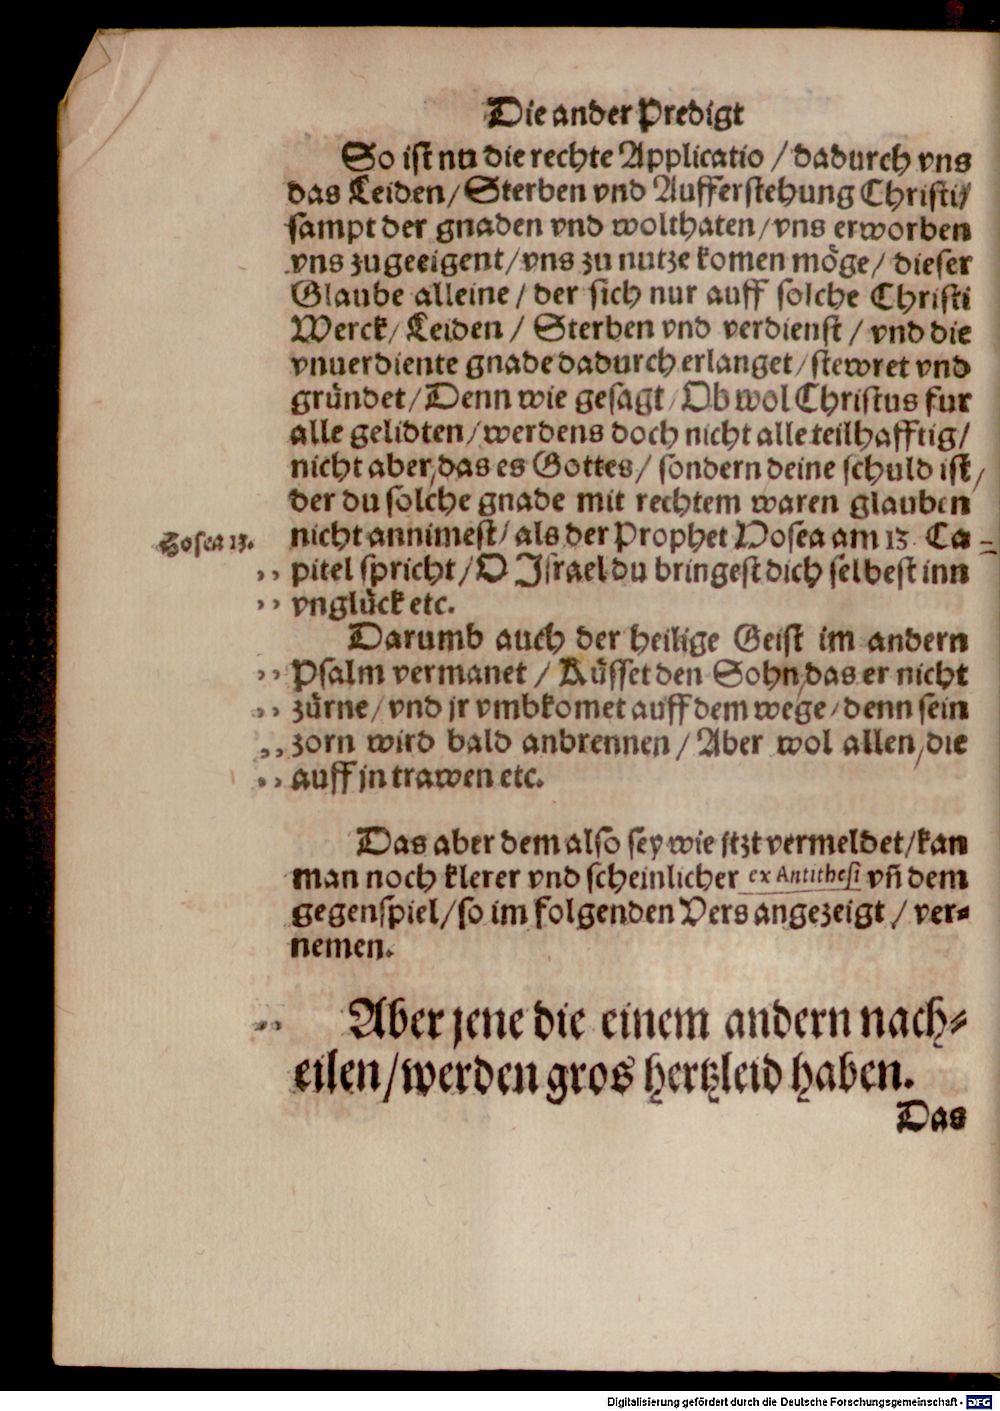 Die ander Predigt
So ist nu die rechte Applicatio / dadurch vns
das Leiden / Sterben vnd Aufferstehung Christi /
sampt der gnaden vnd wolthaten / vns erworben
vns zugeeigent / vns zu nutze komen möge / dieser
Glaube alleine / der sich nur auff solche Christi
Werck / Leiden / Sterben vnd verdienst / vnd die
vnuerdiente gnade dadurch erlanget / stewret vnd
gründet / Denn wie gesagt / Ob wol Christus fur
alle gelidten / werdens doch nicht alle teilhafftig /
nicht aber / das es Gottes / sondern deine schuld ist /
der du solche gnade mit rechtem waren glauben
Hosea 13. nicht annimest / als der Prophet Hosea am 13. Ca=
,, pitel spricht / O Israel du bringest dich selbest inn
,, vnglück etc.
Darumb auch der heilige Geist im andern
,, Psalm vermanet / Küsset den Sohn / das er nicht
,, zürne / vnd jr vmbkomet auff dem wege / denn sein
,, zorn wird bald anbrennen / Aber wol allen / die
,, auff jn trawen etc.
Das aber dem also sey wie jtzt vermeldet / kan
man noch klerer vnd scheinlicher ex Antithesi vñ dem
gegenspiel / so im folgenden Vers angezeigt / ver=
nemen.
,, Aber jene die einem andern nach=
eilen / werden gros hertzleid haben.
Das
Digitalisierung gefördert durch die Deutsche Forschungsgemeinschaft - DFG